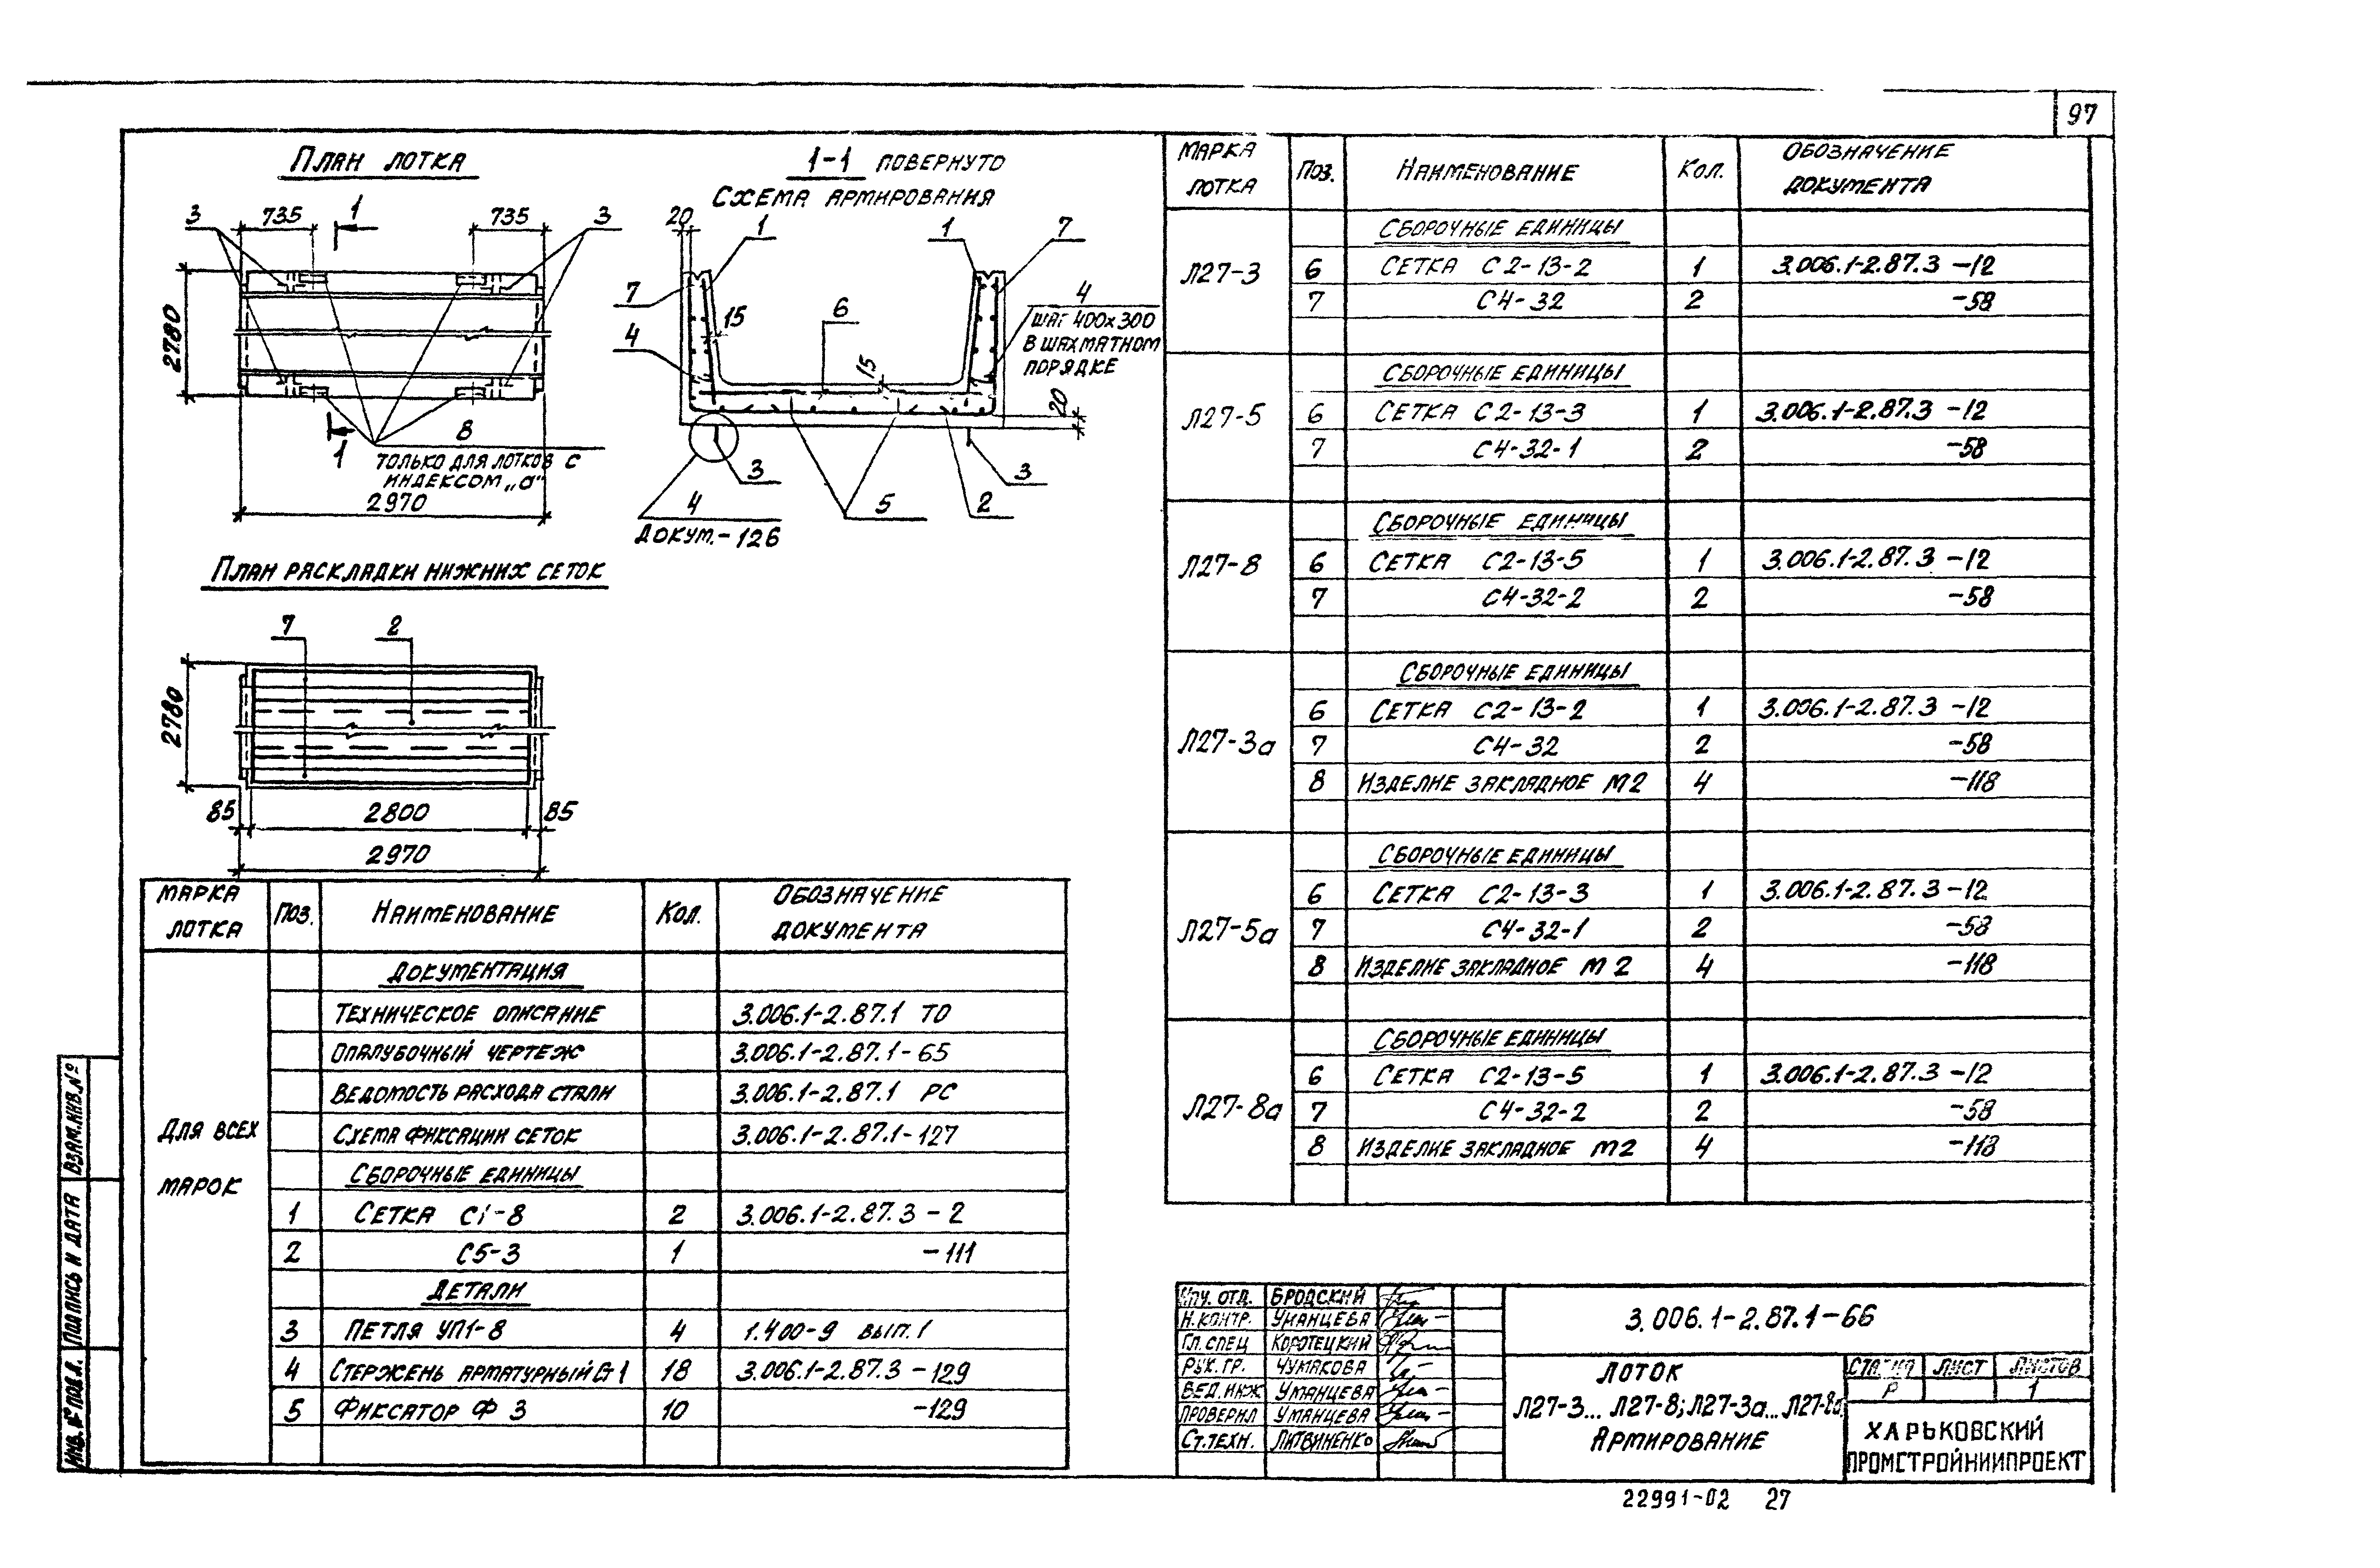 97
План лотка
3 735 1 735 3
2780
8
только для лотков с
индексом „а"
1
2970
1-1 повернуто
Схема армирования
20 1 1 7
7
4
15
6
15
4
шаг 400х300
в шахматном
порядке
20
3
3
4
Докум.-126
5
2
План раскладки нижних сеток
7 2
2780
85 2800 85
2970
Марка лотка Поз. Наименование Кол. Обозначение документа
Для всех марок
Документация
Техническое описание 3.006.1-2.87.1 ТО
Опалубочный чертеж 3.006.1-2.87.1-65
Ведомость расхода стали 3.006.1-2.87.1 РС
Схема фиксации сеток 3.006.1-2.87.1-127
Сборочные единицы
1 Сетка С1-8 2 3.006.1-2.87.3-2
2 С5-3 1 -111
Детали
3 Петля УП1-8 4 1.400-9 вып.1
4 Стержень арматурный 18 3.006.1-2.87.3-129
5 Фиксатор Ф 3 10 -129
Марка лотка Поз. Наименование Кол. Обозначение документа
Л27-3
Сборочные единицы
6 Сетка С2-13-2 1 3.006.1-2.87.3-12
7 С4-32 2 -58
Л27-5
Сборочные единицы
6 Сетка С2-13-3 1 3.006.1-2.87.3-12
7 С4-32-1 2 -58
Л27-8
Сборочные единицы
6 Сетка С2-13-5 1 3.006.1-2.87.3-12
7 С4-32-2 2 -58
Л27-3а
Сборочные единицы
6 Сетка С2-13-2 1 3.006.1-2.87.3-12
7 С4-32 2 -58
8 Изделие закладное М2 4 -118
Л27-5а
Сборочные единицы
6 Сетка С2-13-3 1 3.006.1-2.87.3-12
7 С4-32-1 2 -58
8 Изделие закладное М2 4 -118
Л27-8а
Сборочные единицы
6 Сетка С2-13-5 1 3.006.1-2.87.3-12
7 С4-32-2 2 -58
8 Изделие закладное М2 4 -118
Нач. отд. Бродский
Н.контр. Уманцева
Гл.спец Коротецкий
Рук. гр. Чумакова
Вед.инж Уманцева
Проверил Уманцева
Ст.техн. Литвиненко
3.006.1-2.87.1-66
Лоток
Л27-3... Л27-8; Л27-3а... Л27-8а.
Армирование
Стадия Лист Листов
Р 1
Харьковский
ПромстройНИИпроект
Взам.инв.№
Подпись и дата
Инв.№ подл.
22991-02 27